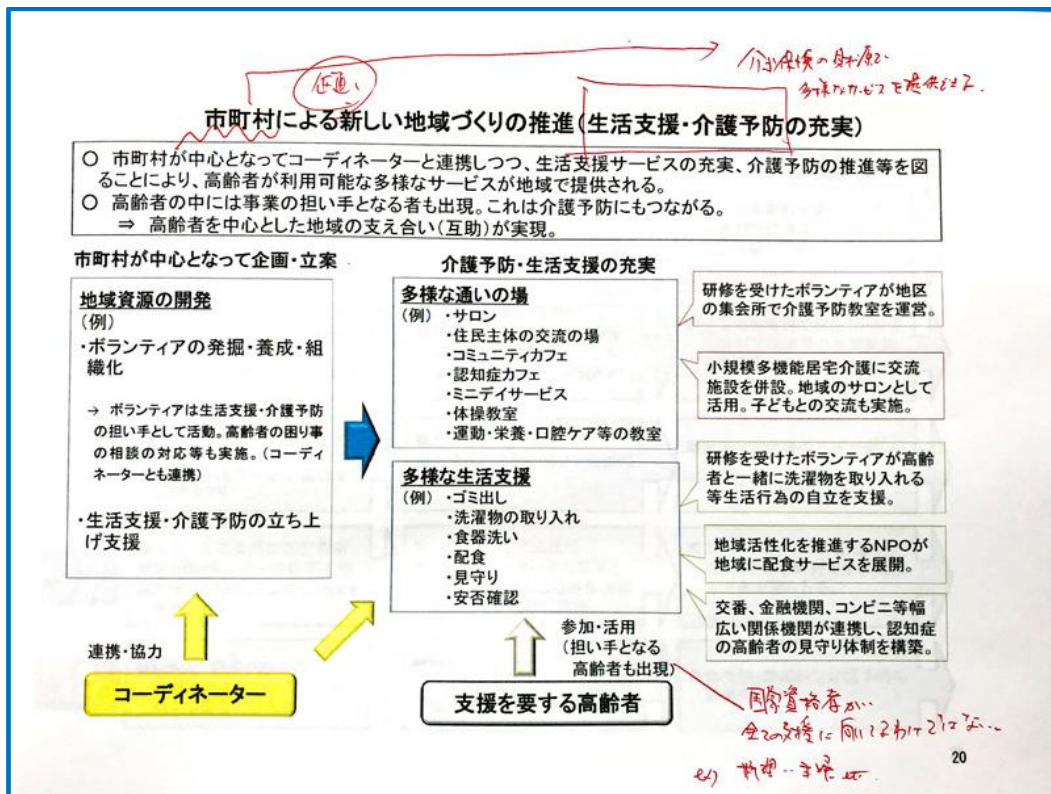 介護保険の財源で
多様なサービスを提供できる.
企画、
市町村による新しい地域づくりの推進(生活支援・介護予防の充実)
○ 市町村が中心となってコーディネーターと連携しつつ、生活支援サービスの充実、介護予防の推進等を図
ることにより、高齢者が利用可能な多様なサービスが地域で提供される。
○ 高齢者の中には事業の担い手となる者も出現。これは介護予防にもつながる。
⇒ 高齢者を中心とした地域の支え合い(互助)が実現。
市町村が中心となって企画・立案
地域資源の開発
(例)
・ボランティアの発掘・養成・組
織化
→ ボランティアは生活支援・介護予防
の担い手として活動。高齢者の困り事
の相談の対応等も実施。(コーディ
ネーターとも連携)
・生活支援・介護予防の立ち上
げ支援
介護予防・生活支援の充実
多様な通いの場
(例) ・サロン
・住民主体の交流の場
・コミュニティカフェ
・認知症カフェ
・ミニデイサービス
・体操教室
・運動・栄養・口腔ケア等の教室
多様な生活支援
(例) ・ゴミ出し
・洗濯物の取り入れ
・食器洗い
・配食
・見守り
・安否確認
研修を受けたボランティアが地区
の集会所で介護予防教室を運営。
小規模多機能居宅介護に交流
施設を併設。地域のサロンとして
活用。子どもとの交流も実施。
研修を受けたボランティアが高齢
者と一緒に洗濯物を取り入れる
等生活行為の自立を支援。
地域活性化を推進するNPOが
地域に配食サービスを展開。
交番、金融機関、コンビニ等幅
広い関係機関が連携し、認知症
の高齢者の見守り体制を構築。
連携・協力
コーディネーター
参加・活用
(担い手となる
高齢者も出現)
支援を要する高齢者
国家資格者が..
全ての支援に向いてるわけではない..
ex) 料理‥主婦 etc
20